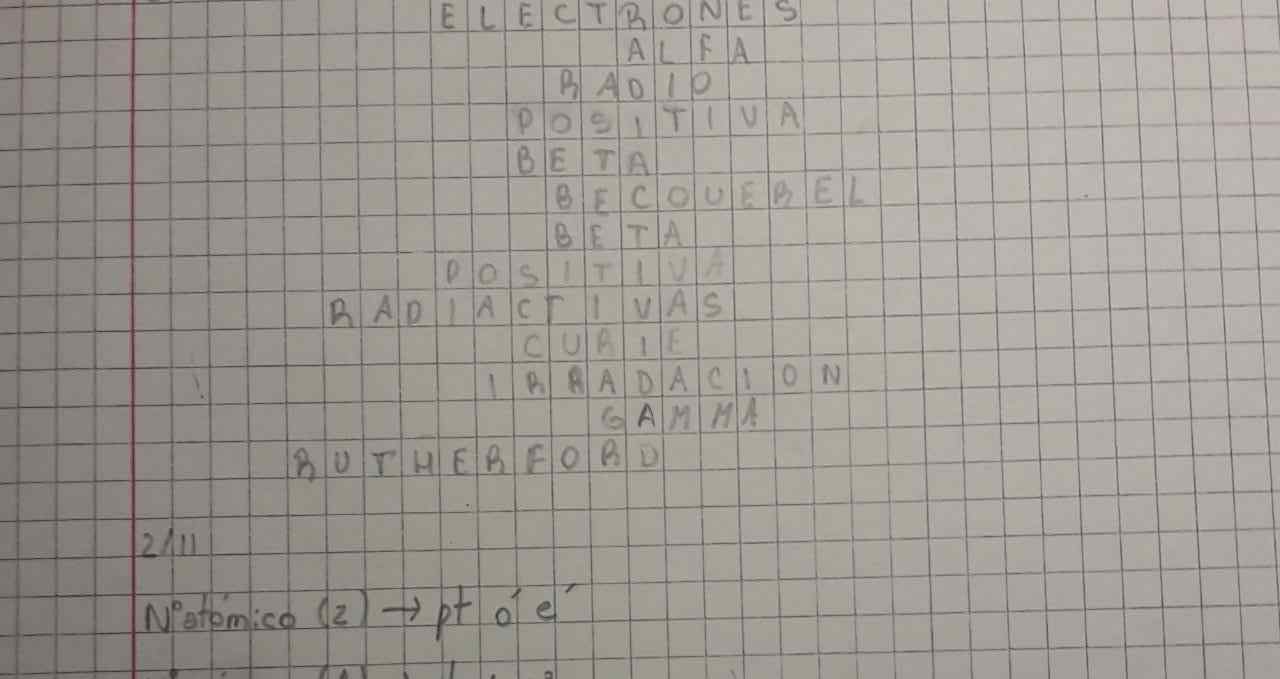 ELECTRONES
ALFA
RADIO
POSITIVA
BETA
BECQUEREL
BETA
POSITIVA
RADIACTIVAS
CURIE
IRRADACION
GAMMA
RUTHERFORD
2/11
Nºatómico (z) → p+ ó e-